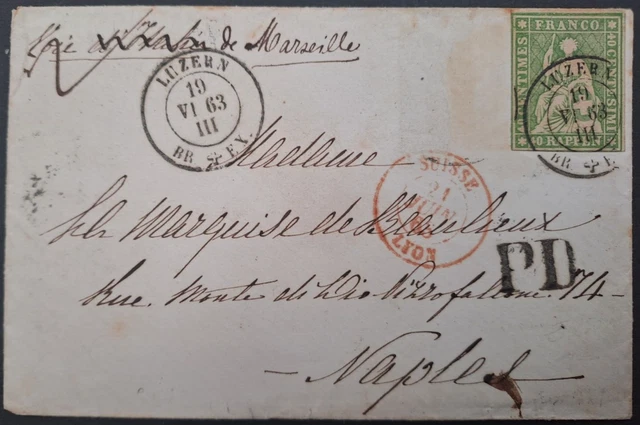 Voie de Marseille
LUZERN
19
VI 63
III
BR. EX.
FRANCO
CENTIMES
40 CENTESIMI
RAPPEN
LUZERN
19
VI 63
III
BR. EX.
Madame
La Marquise de Beaulieux
SUISSE
21
JUIN
LYON
PD
Rue Monte di Dio Pizzofalcone 74
Naples